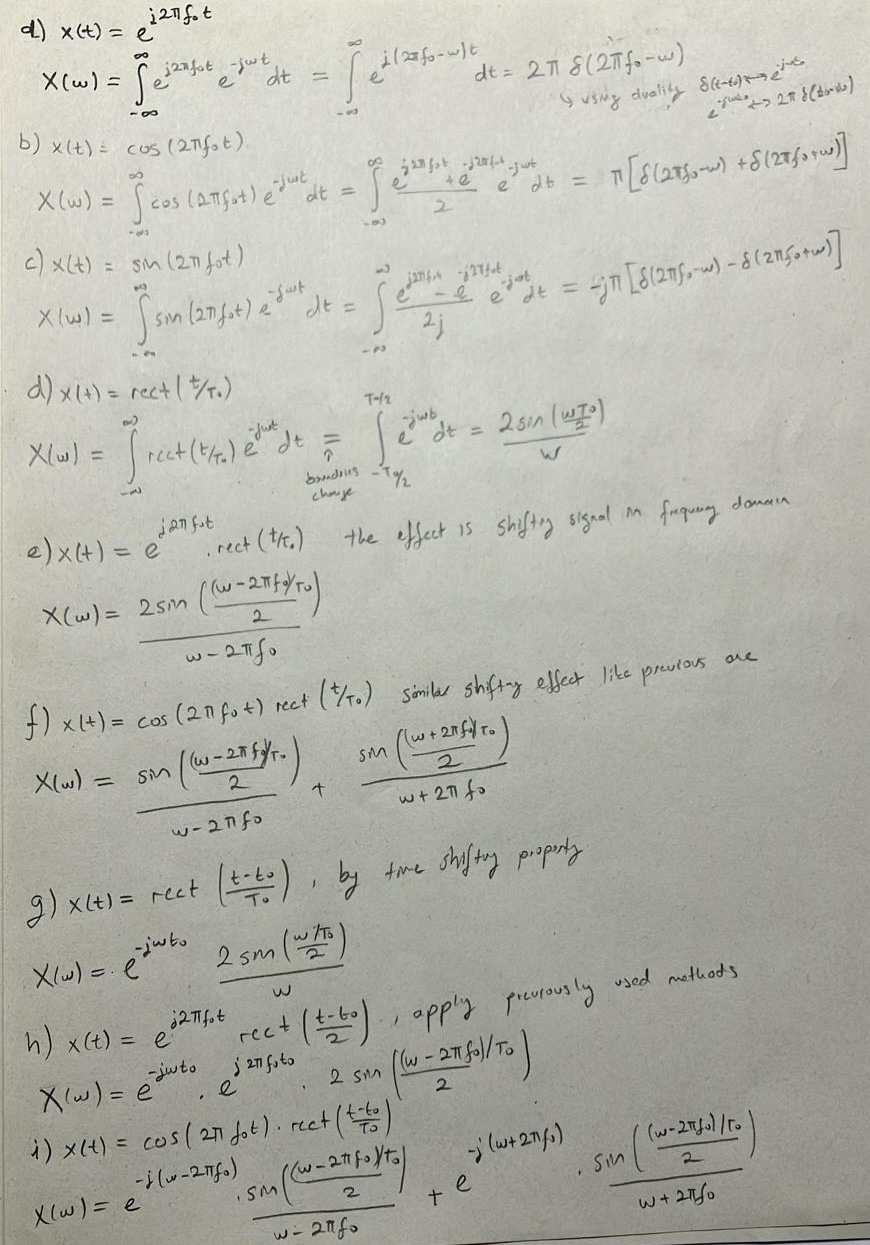 a) x(t) = e^{j2πf₀t}
X(ω) = ∫_{-∞}^{∞} e^{j2πf₀t} e^{-jωt} dt = ∫_{-∞}^{∞} e^{j(2πf₀-ω)t} dt = 2π δ(2πf₀-ω)
↳ using duality δ(t-t₀) ↔ e^{-jωt₀}
b) x(t) = cos(2πf₀t)
X(ω) = ∫_{-∞}^{∞} cos(2πf₀t) e^{-jωt} dt = ∫_{-∞}^{∞} (e^{j2πf₀t} + e^{-j2πf₀t})/2 e^{-jωt} dt = π[δ(2πf₀-ω) + δ(2πf₀+ω)]
c) x(t) = sin(2πf₀t)
X(ω) = ∫_{-∞}^{∞} sin(2πf₀t) e^{-jωt} dt = ∫_{-∞}^{∞} (e^{j2πf₀t} - e^{-j2πf₀t})/2j e^{-jωt} dt = -jπ[δ(2πf₀-ω) - δ(2πf₀+ω)]
d) x(t) = rect(t/T₀)
X(ω) = ∫_{-∞}^{∞} rect(t/T₀) e^{-jωt} dt = ∫_{-T₀/2}^{T₀/2} e^{-jωt} dt = 2sin(ωT₀/2)/ω
↑
boundries
change
e) x(t) = e^{j2πf₀t} . rect(t/T₀) the effect is shifting signal in frequency domain
X(ω) = 2sin((ω-2πf₀)T₀/2)/(ω-2πf₀)
f) x(t) = cos(2πf₀t) rect(t/T₀) similar shifting effect like previous one
X(ω) = sin((ω-2πf₀)T₀/2)/(ω-2πf₀) + sin((ω+2πf₀)T₀/2)/(ω+2πf₀)
g) x(t) = rect((t-t₀)/T₀), by time shifting property
X(ω) = e^{-jωt₀} 2sin(ωT₀/2)/ω
h) x(t) = e^{j2πf₀t} rect((t-t₀)/2), apply previously used methods
X(ω) = e^{-jωt₀} . e^{j2πf₀t₀} . 2sin(((ω-2πf₀)/T₀)/2)
i) x(t) = cos(2πf₀t) . rect((t-t₀)/T₀)
X(ω) = e^{-j(ω-2πf₀)} . sin(((ω-2πf₀)/T₀)/2)/(ω-2πf₀) + e^{-j(ω+2πf₀)} . sin(((ω-2πf₀)/T₀)/2)/(ω+2πf₀)